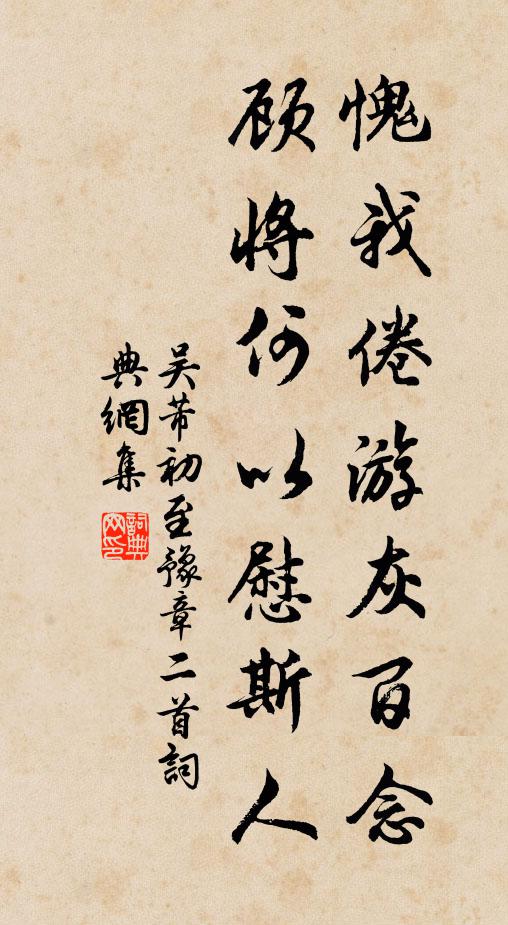 愧我倦游灰百念
顾将何以慰斯人
吴芾初至豫章二首詞
典網集
詞典網印